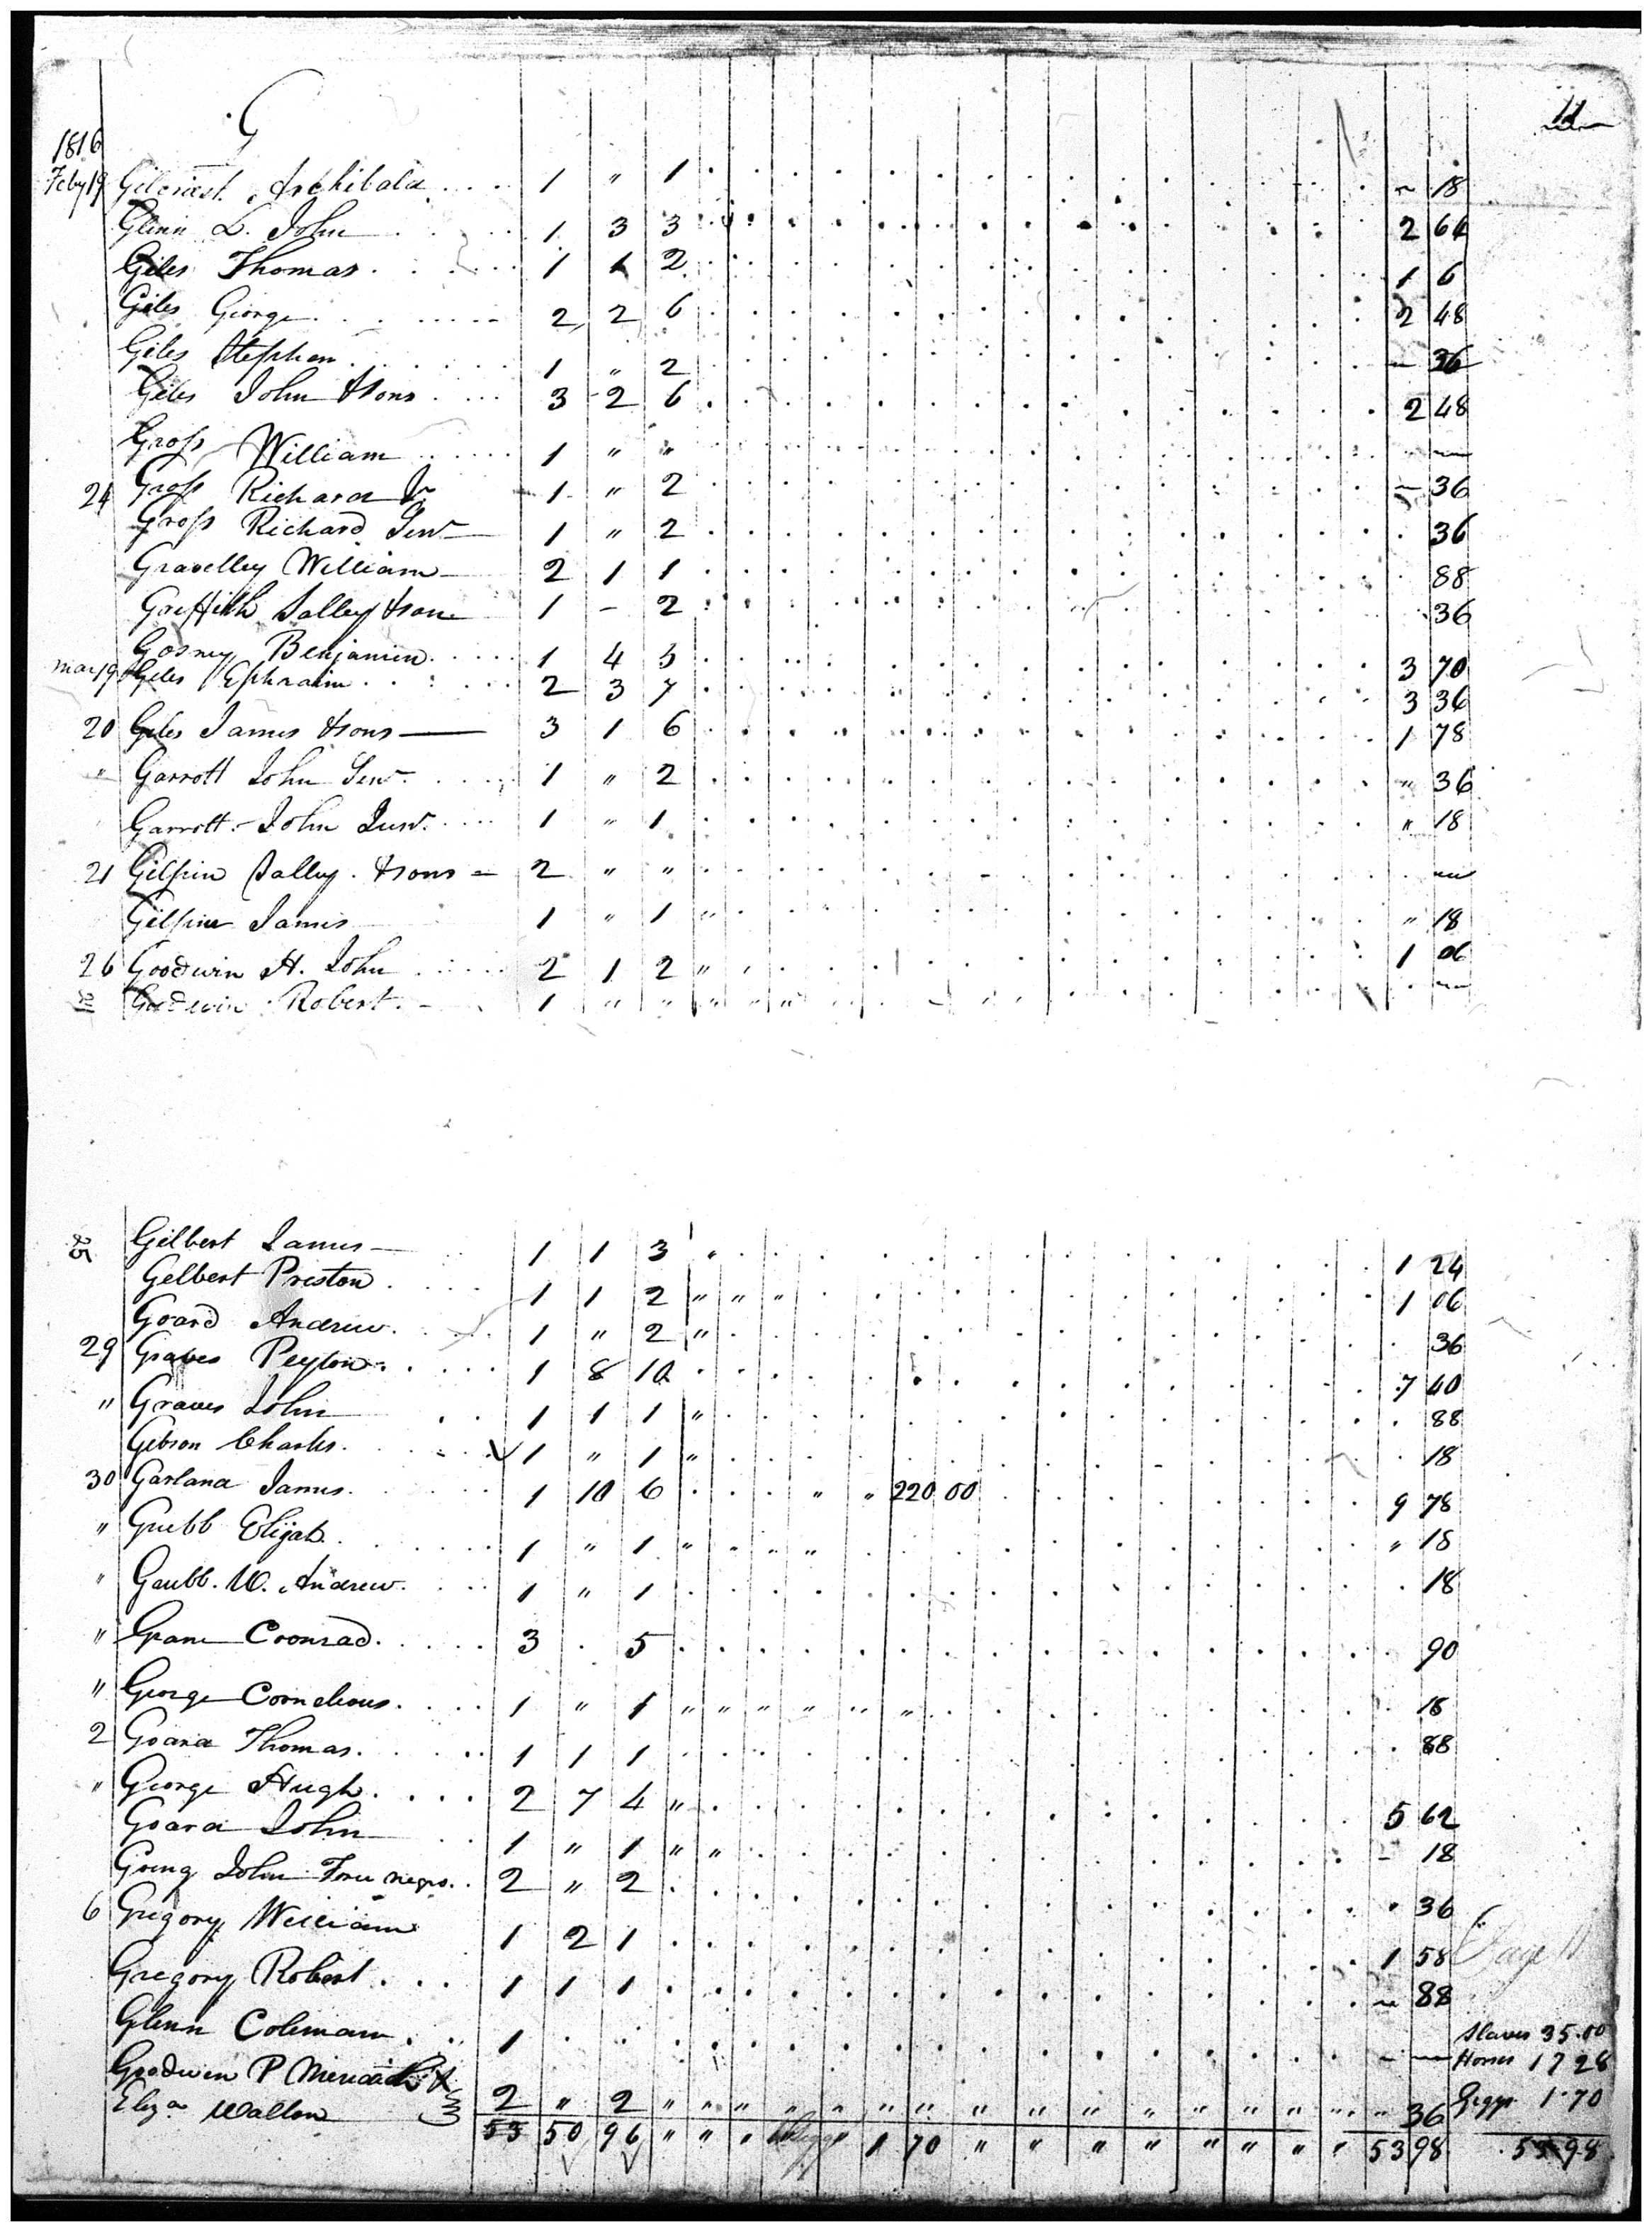 G
11
1816
Feby 19 Gilcriest Archibald 1 " 1 18
Glinn L. John 1 3 3 2 64
Giles Thomas 1 1 2 1 6
Giles George 2 2 6 2 48
Giles Stephen 1 " 2 36
Giles John & sons 3 2 6 2 48
Gross William 1 " "
24 Gross Richard Jr 1 " 2 36
Gross Richard Senr 1 " 2 36
Gravelley William 2 1 1 88
Griffith Salley & son 1 - 2 36
Gosney Benjamin 1 4 5 3 70
Mar 19 Giles Ephraim 2 3 7 3 36
20 Giles James & sons 3 1 6 1 78
" Garrott John Senr 1 " 2 " 36
Garrott John Junr 1 " 1 " 18
21 Gilpin Salley & sons 2 " "
Gilpin James 1 " 1 " " 18
26 Goodwin H. John 2 1 2 " 1 06
Goodwin Robert 1 " " " " "
25 Gilbert James 1 1 3 " 1 24
Gelbert Preston 1 1 2 " " " 1 06
Goard Andrew 1 " 2 " 36
29 Graves Peyton 1 8 10 7 40
" Graves John 1 1 1 " 88
Gibson Charles 1 " 1 " 18
30 Garland James 1 10 6 " " 220 00 9 78
" Grubb Elijah 1 " 1 " " " " " 18
" Grubb W. Andrew 1 " 1 18
" Grane Coonrad 3 . 5 90
" George Cornelious 1 " 1 " " " " " " 18
2 Goard Thomas 1 1 1 88
" George Hugh 2 7 4 " 5 62
Goard John 1 " 1 " " - 18
Going John Free negro 2 " 2 36
6 Gregory William 1 2 1 1 58
Page 11
Gregory Robert 1 1 1 88
Glenn Coleman 1
Slaves 35.00
Horses 17 28
Goodwin P &
Eliza Walton 2 " 2 " " " " " " " " " " " " " " " " 36
Giggs 1.70
53 50 96 " " " 1 70 " " " " " " " " 53 98
53 98